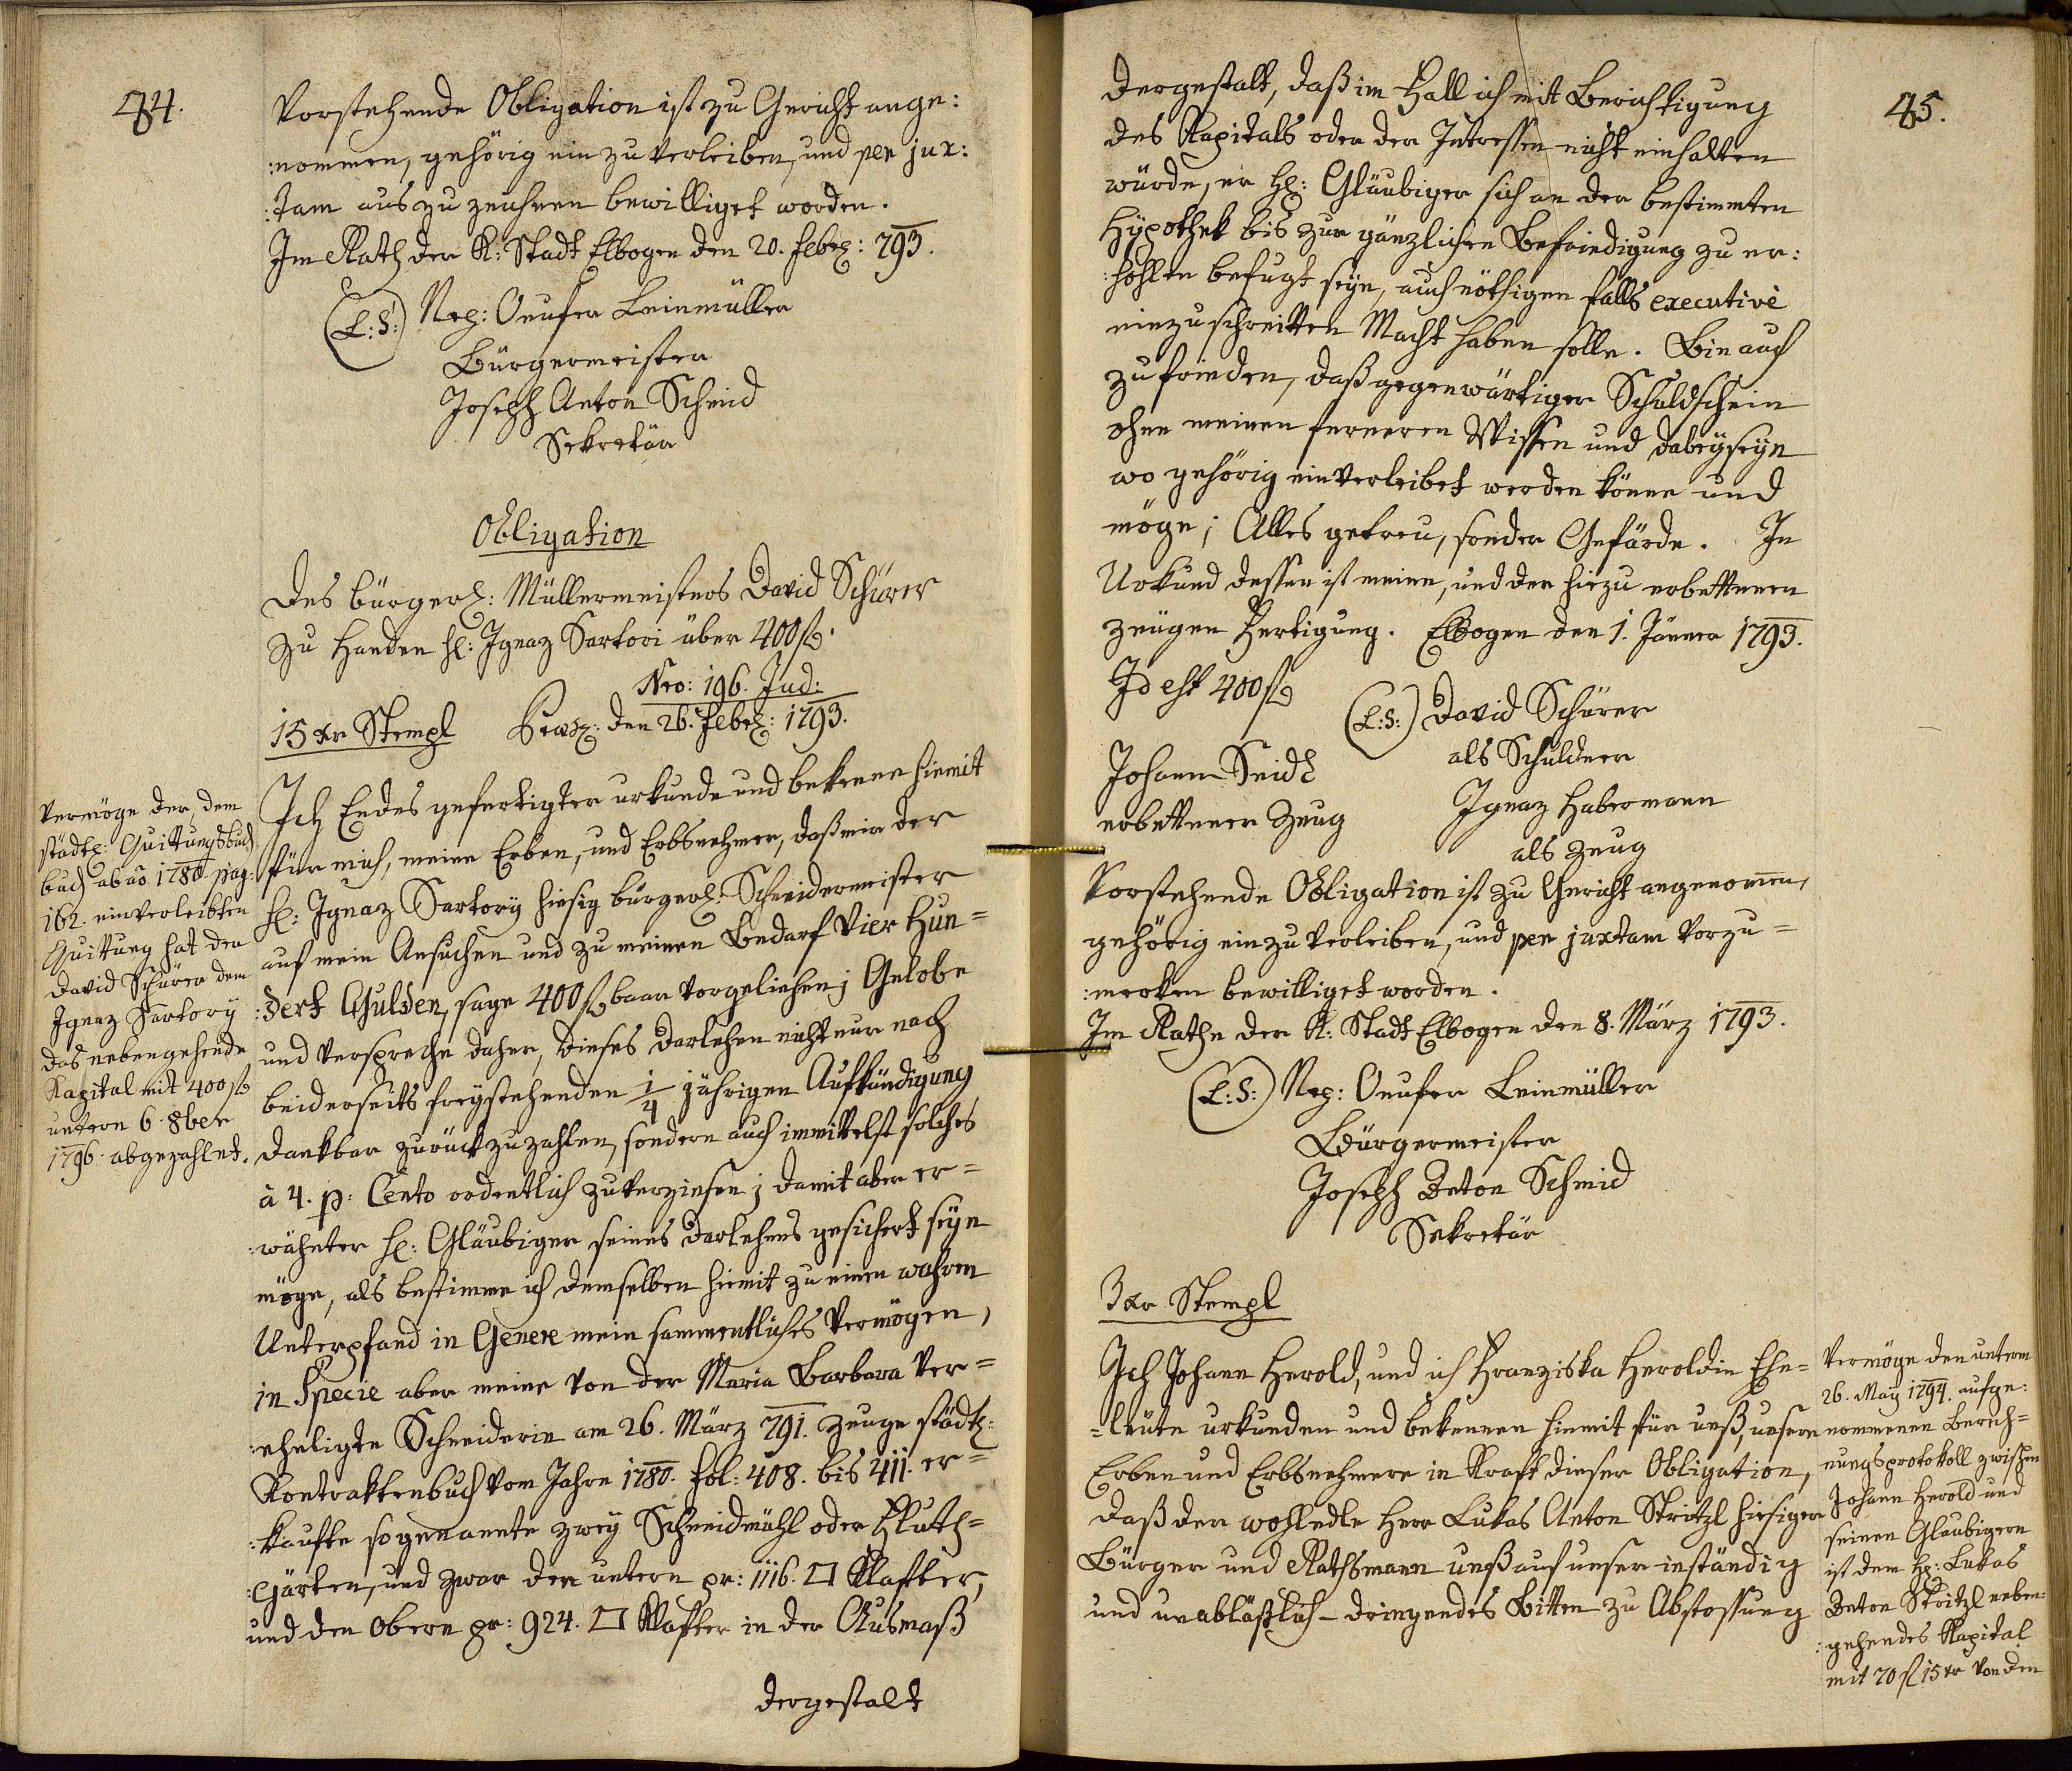 84.
Vorstehende Obligation ist zu Gericht ange:
:nommen, gehörig einzuverleiben, und per jux:
:tam auszuzeichnen bewilliget worden.
Im Rath der K: Stadt Elbogen den 20. Feb: 793.
(L:S:) Nep: Onufer Leinmüller
Bürgermeister
Joseph Anton Schmid
Sekretär
Obligation
Des bürgerl: Müllermeisters David Schürer
zu Handen H: Ignaz Sartori über 400 f.
Nro: 196. Jud:
15 xr Stempl Praes: den 26. Feb: 1793.
Ich Endes gefertigter urkunde und bekenne hiemit
für mich, meine Erben, und Erbsnehmer, daß mir der
H: Ignaz Sartory hiesig bürgerl: Schneidermeister
auf mein Ansuchen und zu meinen Bedarf Vier Hun=
:dert Gulden, sage 400 f baar vorgeliehen; Gelobe
und verspreche daher, dieses Darlehen nicht nur nach
beiderseits freystehenden 1/4 jährigen Aufkündigung
dankbar zurückzuzahlen, sondern auch immittelst solches
à 4. p: Cento ordentlich zu verzinsen; damit aber er=
:wähnter H: Gläubiger seines Darlehens gesichert seyn
möge, als bestimme ich demselben hiemit zu einen wahren
Unterpfand in Genere mein sammentliches Vermögen,
in Specie aber meine von der Maria Barbara Ver=
:eheligte Schneiderin am 26. März 791. Zeuge städt:
Kontraktenbuch vom Jahre 1780. fol: 408. bis 411. er=
:kaufte sogenannte zwey Schneidmühl oder Fluth=
:Gärten, und zwar den untern pr: 1116. □ Klafter,
und den Obern pr: 924. □ Klafter in der Ausmaß
dergestalt
Vermöge der, dem
städt: Quittungsbuch
buch ab ao 1780. pag:
162. einverleibten
Quittung hat der
David Schürer dem
Ignaz Sartory
das nebengehende
Kapital mit 400 f
untern 6. 8ber
1796. abgezahlet.
85.
dergestalt, daß im Fall ich mit Berichtigung
des Kapitals oder der Intressen nicht einhalten
würde, er H: Gläubiger sich an der bestimmten
Hypothek bis zur gänzlichen Befriedigung zu er:
:hohlen befugt seyn, auch nöthigen falls executivè
einzuschreitten Macht haben solle. Bin auch
zufrieden, daß gegenwärtiger Schuldschein
ohne meinen ferneren Wissen und dabeyseyn
wo gehörig einverleibet werden könne und
möge; Alles getreu, sonder Gefärde. In
Urkund dessen ist meine, und der hiezu erbettenen
Zeugen Fertigung. Elbogen den 1. Jänner 1793.
Id est 400 f
(L:S:) David Schürer
als Schuldner
Johann Seidl
erbettener Zeug
Ignaz Habermann
als Zeug
Vorstehende Obligation ist zu Gericht angenommen,
gehörig einzuverleiben, und per juxtam vorzu=
:merken bewilliget worden.
Im Rathe der K: Stadt Elbogen den 8. März 1793.
(L:S:) Nep: Onufer Leinmüller
Bürgermeister
Joseph Anton Schmid
Sekretär
3 xr Stempl
Ich Johann Herold, und ich Franziska Heroldin Ehe=
=leute urkunden und bekennen hiemit für unß, unsere
Erben und Erbsnehmere in Kraft dieser Obligation,
daß der wohledle Herr Lukas Anton Stritzl hiesiger
Bürger und Rathsmann unß auf unser inständig
und unabläßlich-dringendes Bitten zu Abstossung
Vermöge den unterm
26. May 1794. aufge:
nommenen Berech=
nungsprotokoll zwischen
Johann Herold und
seinen Glaubigern
ist dem H: Lukas
Anton Stritzl neben:
:gehendes Kapital
mit 70 f 15 xr von den